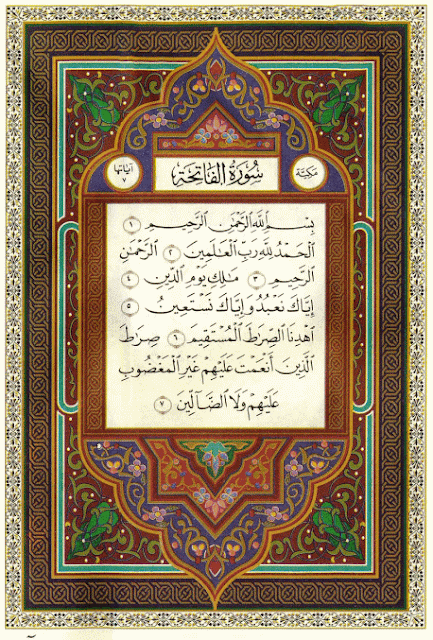 مكية
سُورَةُ الفَاتِحَةِ
آياتها ٧
بِسْمِ ٱللَّهِ ٱلرَّحْمَٰنِ ٱلرَّحِيمِ ١
ٱلْحَمْدُ لِلَّهِ رَبِّ ٱلْعَٰلَمِينَ ٢ ٱلرَّحْمَٰنِ
ٱلرَّحِيمِ ٣ مَٰلِكِ يَوْمِ ٱلدِّينِ ٤
إِيَّاكَ نَعْبُدُ وَإِيَّاكَ نَسْتَعِينُ ٥
ٱهْدِنَا ٱلصِّرَٰطَ ٱلْمُسْتَقِيمَ ٦ صِرَٰطَ
ٱلَّذِينَ أَنْعَمْتَ عَلَيْهِمْ غَيْرِ ٱلْمَغْضُوبِ
عَلَيْهِمْ وَلَا ٱلضَّآلِّينَ ٧